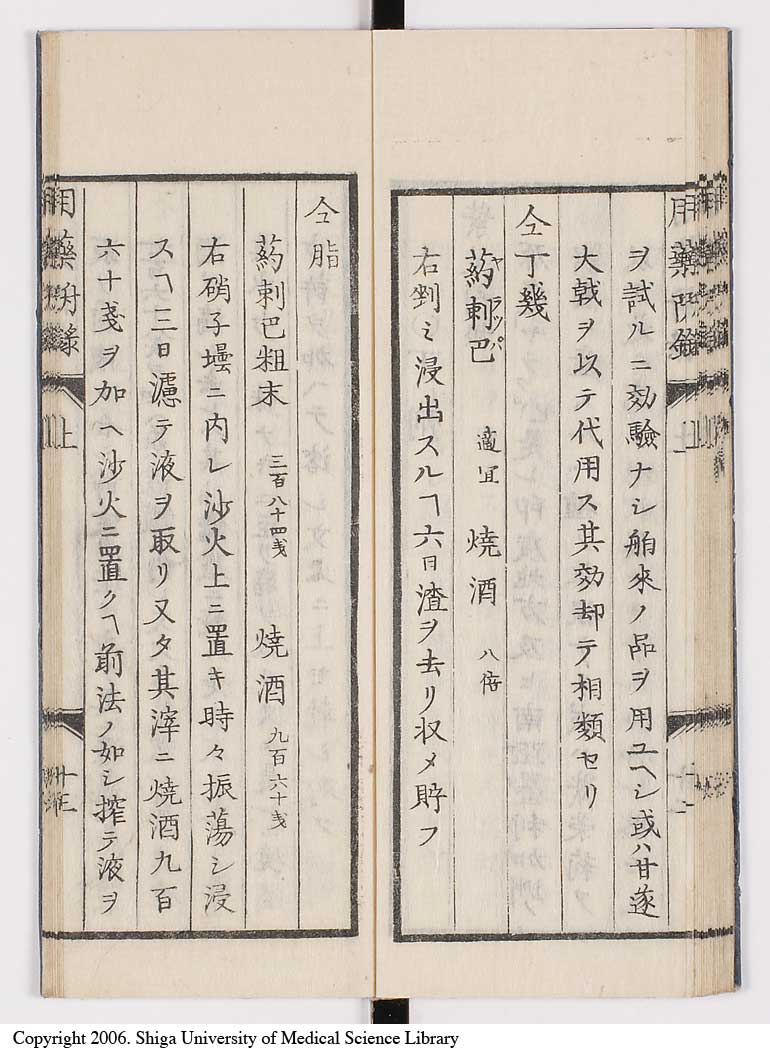 ヲ試ルニ効驗ナシ舶來ノ品ヲ用ユヘシ或ハ甘遂
大戟ヲ以テ代用ス其効却テ相類セリ
仝丁幾
葯刺巴 ヤラッパ 適宜 燒酒 八倍
右剉ミ浸出スルヿ六日渣ヲ去リ収メ貯フ
仝脂
葯刺巴粗末 三百八十四戔 燒酒 九百六十戔
右硝子壜ニ内レ沙火上ニ置キ時々振蕩シ浸
スヿ三日濾テ液ヲ取リ又タ其滓ニ燒酒九百
六十戔ヲ加ヘ沙火ニ置クヿ前法ノ如シ搾テ液ヲ
上
Copyright 2006. Shiga University of Medical Science Library